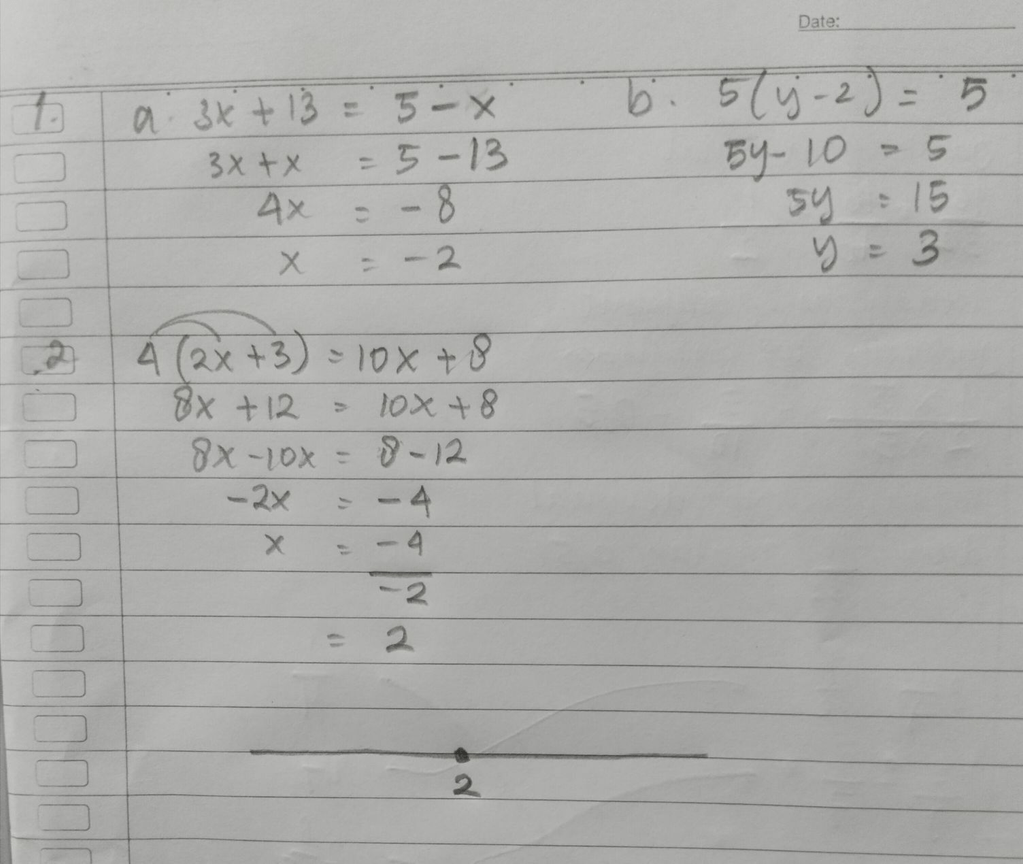 Date:
1. a. 3x + 13 = 5 - x b. 5(y - 2) = 5
3x + x = 5 - 13 5y - 10 = 5
4x = - 8 5y = 15
x = - 2 y = 3
2 4 (2x + 3) = 10x + 8
8x + 12 = 10x + 8
8x - 10x = 8 - 12
- 2x = - 4
x = - 4
- 2
= 2
2